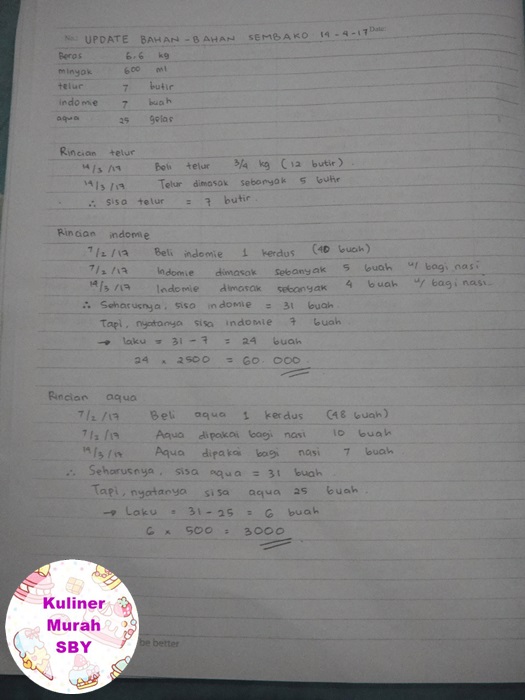 No: UPDATE BAHAN-BAHAN SEMBAKO 14-4-17 Date:
Beras 6.6 kg
minyak 600 ml
telur 7 butir
indomie 7 buah
aqua 25 gelas
Rincian telur
14/3/17 Beli telur 3/4 kg (12 butir).
14/3/17 Telur dimasak sebanyak 5 butir
∴ sisa telur = 7 butir
Rincian indomie
7/2/17 Beli indomie 1 kerdus (40 buah)
7/2/17 Indomie dimasak sebanyak 5 buah u/ bagi nasi
14/3/17 Indomie dimasak sebanyak 4 buah u/ bagi nasi.
∴ Seharusnya, sisa indomie = 31 buah.
Tapi, nyatanya sisa indomie 7 buah.
→ laku = 31 - 7 = 24 buah
24 x 2500 = 60.000
Rincian aqua
7/2/17 Beli aqua 1 kerdus (48 buah)
7/2/17 Aqua dipakai bagi nasi 10 buah
14/3/17 Aqua dipakai bagi nasi 7 buah
∴ Seharusnya, sisa aqua = 31 buah.
Tapi, nyatanya sisa aqua 25 buah.
→ Laku = 31 - 25 = 6 buah
6 x 500 = 3000
Kuliner
Murah
SBY
be better